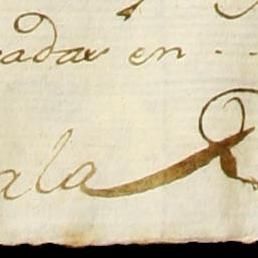 adas en - -
ala